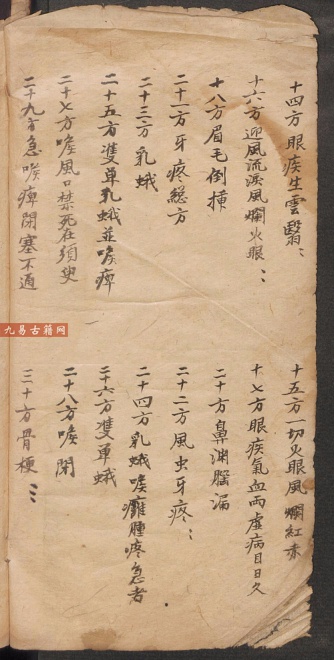 十四方眼疾生雲翳
十五方一切火眼風爛紅赤
十六方迎風流淚風爛火眼
十七方眼疾氣血両虚病目日久
十八方眉毛倒揷
二十方鼻渊腦漏
二十一方牙疼総方
二十二方風虫牙疼
二十三方乳蛾
二十四方乳蛾喉癰腫疼急者
二十五方雙单乳蛾並喉痺
二十六方雙单蛾
二十七方喉風口禁死在須臾
二十八方喉閉
二十九方急喉痺閉塞不通
三十方骨梗
九易古籍网